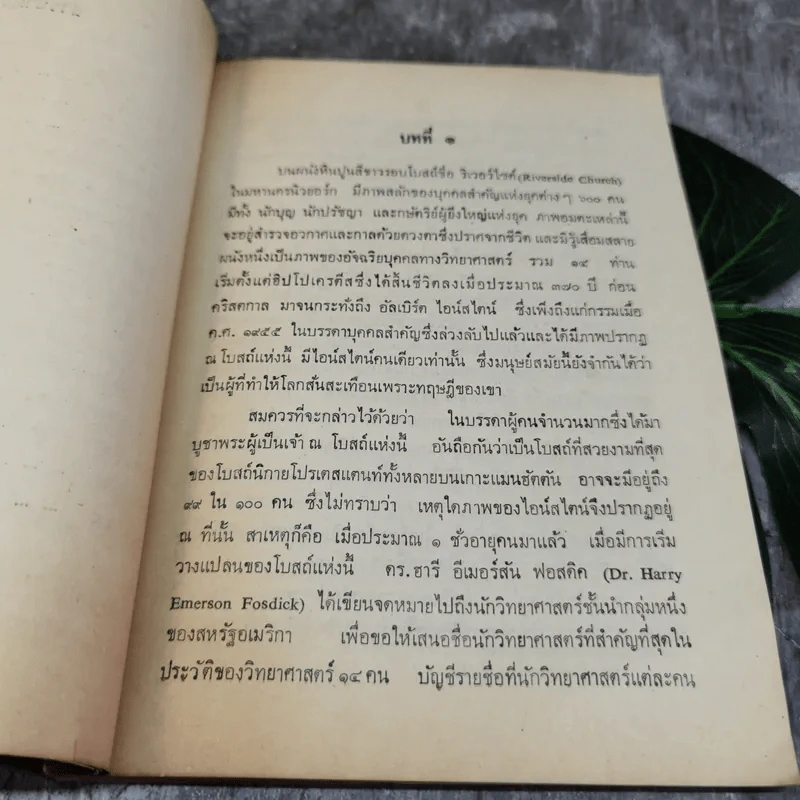 บทที่ ๑
บนผนังหินปูนสีขาวรอบโบสถ์ชื่อ ริเวอร์ไซด์ (Riverside Church)
ในมหานครนิวยอร์ก มีภาพสลักของบุคคลสำคัญแห่งยุคต่างๆ ๖๐๐ คน
มีทั้ง นักบุญ นักปรัชญา และกษัตริย์ผู้ยิ่งใหญ่แห่งยุค ภาพอมตะเหล่านี้
จะอยู่สำรวจอวกาศและกาลด้วยดวงตาซึ่งปราศจากชีวิต และมิรู้เสื่อมสลาย
ผนังหนึ่งเป็นภาพของอัจฉริยบุคคลทางวิทยาศาสตร์ รวม ๑๔ ท่าน
เริ่มตั้งแต่ฮิปโปเครตีสซึ่งได้สิ้นชีวิตลงเมื่อประมาณ ๓๗๐ ปี ก่อน
คริสตกาล มาจนกระทั่งถึง อัลเบิร์ต ไอน์สไตน์ ซึ่งเพิ่งถึงแก่กรรมเมื่อ
ค.ศ. ๑๙๕๕ ในบรรดาบุคคลสำคัญซึ่งล่วงลับไปแล้วและได้มีภาพปรากฏ
ณ โบสถ์แห่งนี้ มีไอน์สไตน์คนเดียวเท่านั้น ซึ่งมนุษย์สมัยนี้ยังจำกันได้ว่า
เป็นผู้ที่ทำให้โลกสั่นสะเทือนเพราะทฤษฎีของเขา
สมควรที่จะกล่าวไว้ด้วยว่า ในบรรดาผู้คนจำนวนมากซึ่งได้มา
บูชาพระผู้เป็นเจ้า ณ โบสถ์แห่งนี้ อันถือกันว่าเป็นโบสถ์ที่สวยงามที่สุด
ของโบสถ์นิกายโปรเตสแตนท์ทั้งหลายบนเกาะแมนฮัตตัน อาจจะมีอยู่ถึง
๙๙ ใน ๑๐๐ คน ซึ่งไม่ทราบว่า เหตุใดภาพของไอน์สไตน์จึงปรากฏอยู่
ณ ที่นั้น สาเหตุก็คือ เมื่อประมาณ ๑ ชั่วอายุคนมาแล้ว เมื่อมีการเริ่ม
วางแปลนของโบสถ์แห่งนี้ ดร. ฮารี อีเมอร์สัน ฟอสดิค (Dr. Harry
Emerson Fosdick) ได้เขียนจดหมายไปถึงนักวิทยาศาสตร์ชั้นนำกลุ่มหนึ่ง
ของสหรัฐอเมริกา เพื่อขอให้เสนอชื่อนักวิทยาศาสตร์ที่สำคัญที่สุดใน
ประวัติของวิทยาศาสตร์ ๑๔ คน บัญชีรายชื่อที่นักวิทยาศาสตร์แต่ละคน